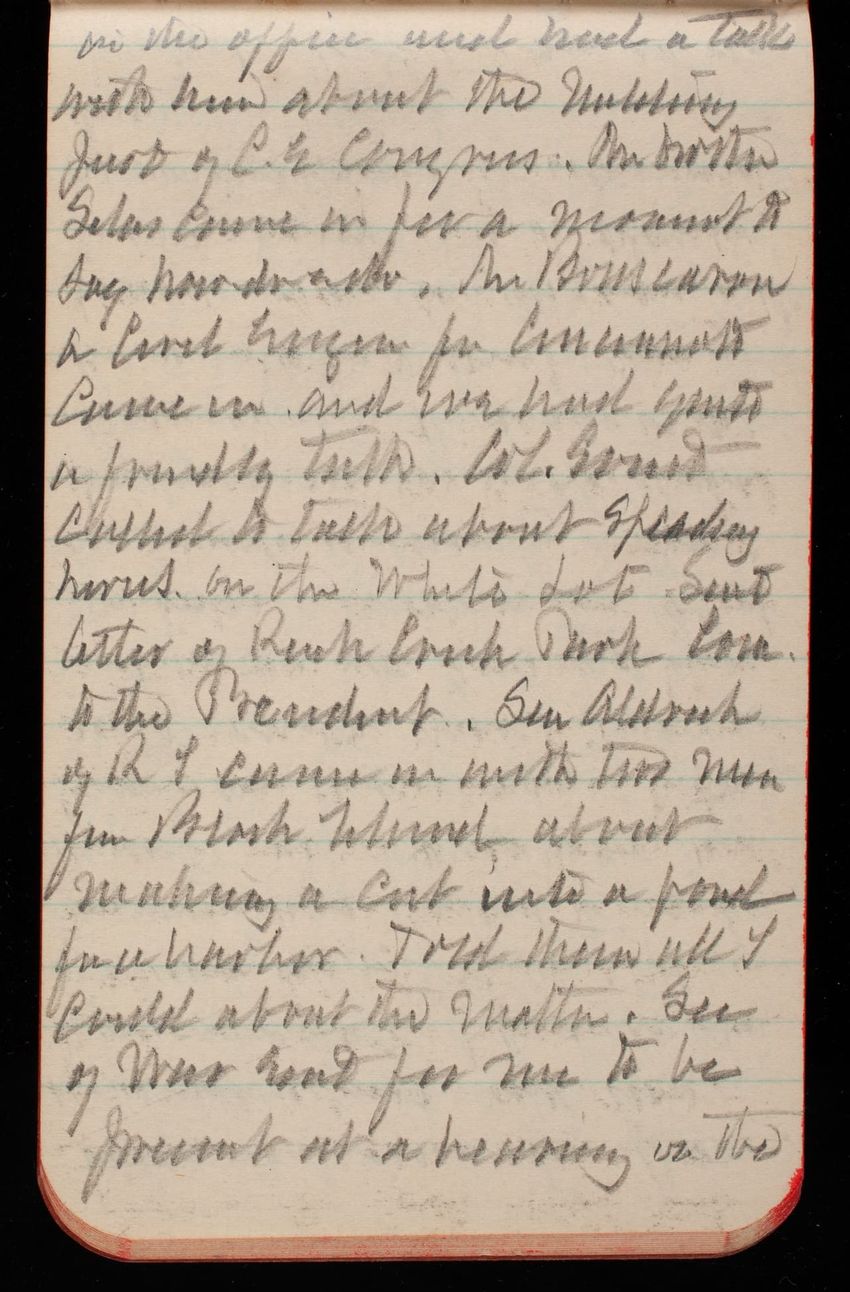 in the office and had a talk
with him about the Nullity
Just of C. E Congress. Mr
Silas came in for a moment to
say how do do. Mr Bouscaren
a Civil Engineer fr Cincinnati
Came in and we had quite
a friendly talk. Col. Ernst
called to talk about Speeding
horses on the White Lot Sent
letter of Rock Creek Park Com.
to the President. Sen Aldrich
of R I came in with two men
from Block Island about
making a cut into a pond
for a harbor. Told them all I
could about the matter. Sec
of War Send for me to be
present at a hearing in the